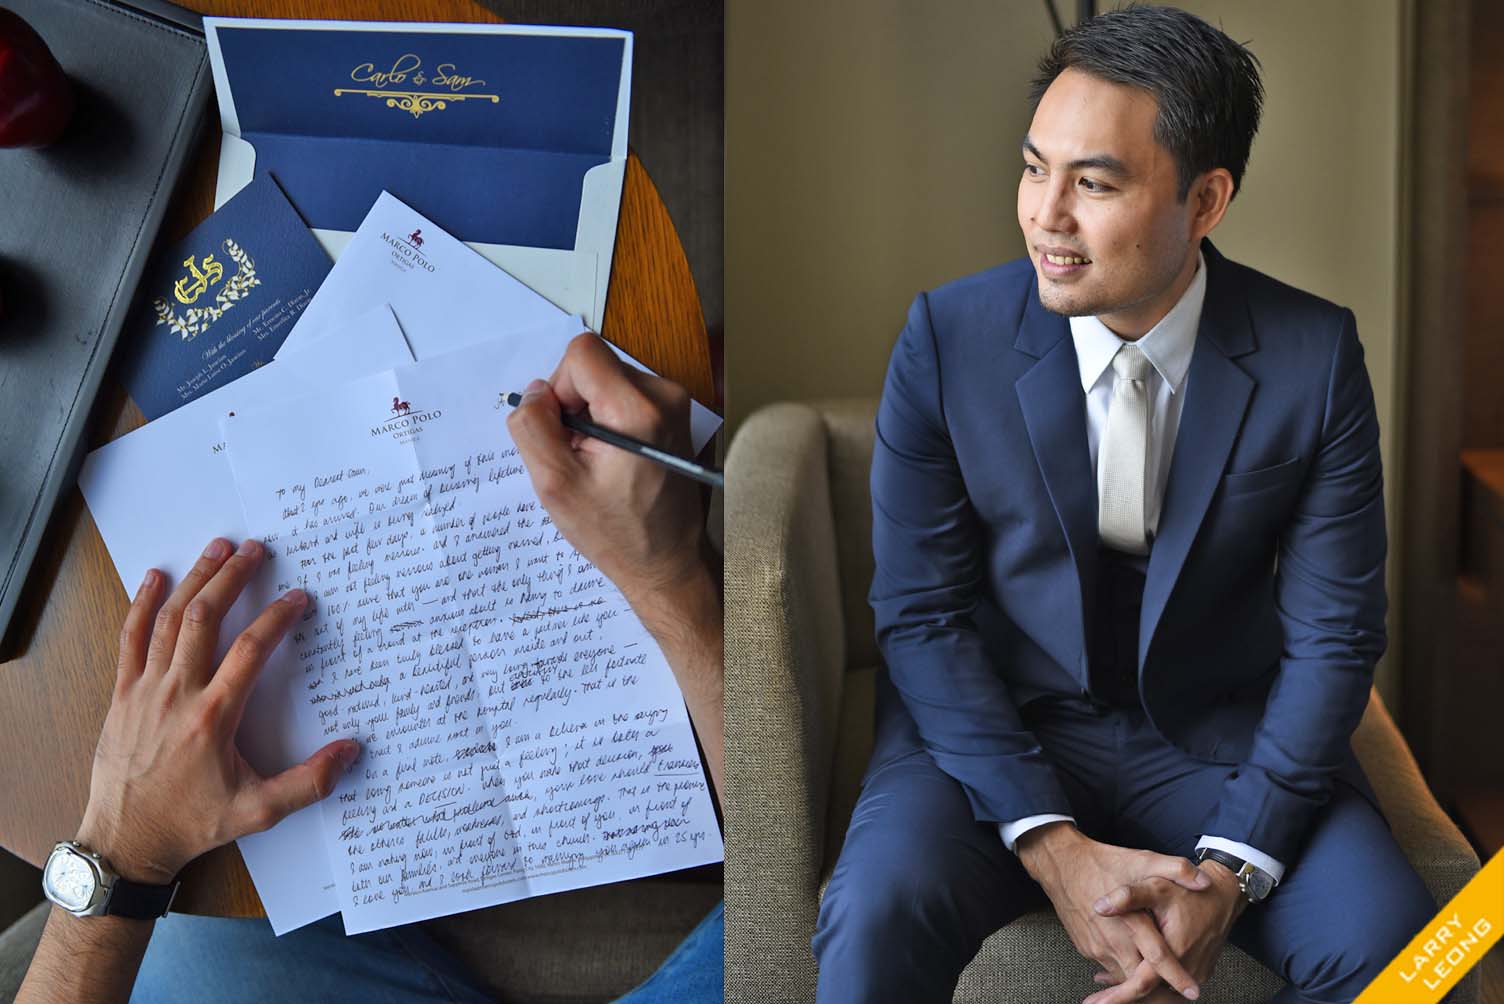 Carlo & Sam
MARCO POLO
ORTIGAS
MANILA
CJS
With the blessing of our parents
Mr. Joseph L. Juscian
Mrs. Maria Luisa O. Juscian
Mr. Ernesto C. Dizon, Jr.
Mrs. Ernestina R. Dizon
We
MARCO POLO
ORTIGAS
MANILA
To my Dearest Sam,
that I and ago, we were just dreaming of this
now it has arrived. Our dream of becoming lifetime
husband and wife is being realized.
For the past few days, a number of people have
me if I was feeling nervous. and I answered the
am not feeling nervous about getting married,
100% sure that you are the woman I want to
the rest of my life with — and that the only thing I am
constantly feeling anxious about is having to dance
in front of a crowd at the reception.
I have been truly blessed to have a partner like you —
a beautiful person inside and out.
good-natured, kind-hearted, and very loving towards everyone —
not only your family and friends but especially to the less fortunate
we encounter at the hospital regularly. That is the
trait I admire most in you.
On a final note, I am a believer in the saying
that loving someone is not just a feeling; it is both a
feeling and a DECISION. When you make that decision, your
love should transcend
the other's faults, weaknesses, and shortcomings. That is the promise
I am making now, in front of God, in front of you, in front of
both our families, and everyone in this church.
I love you and I look forward to marrying you again in 25 yrs.
LARRY
LEONG